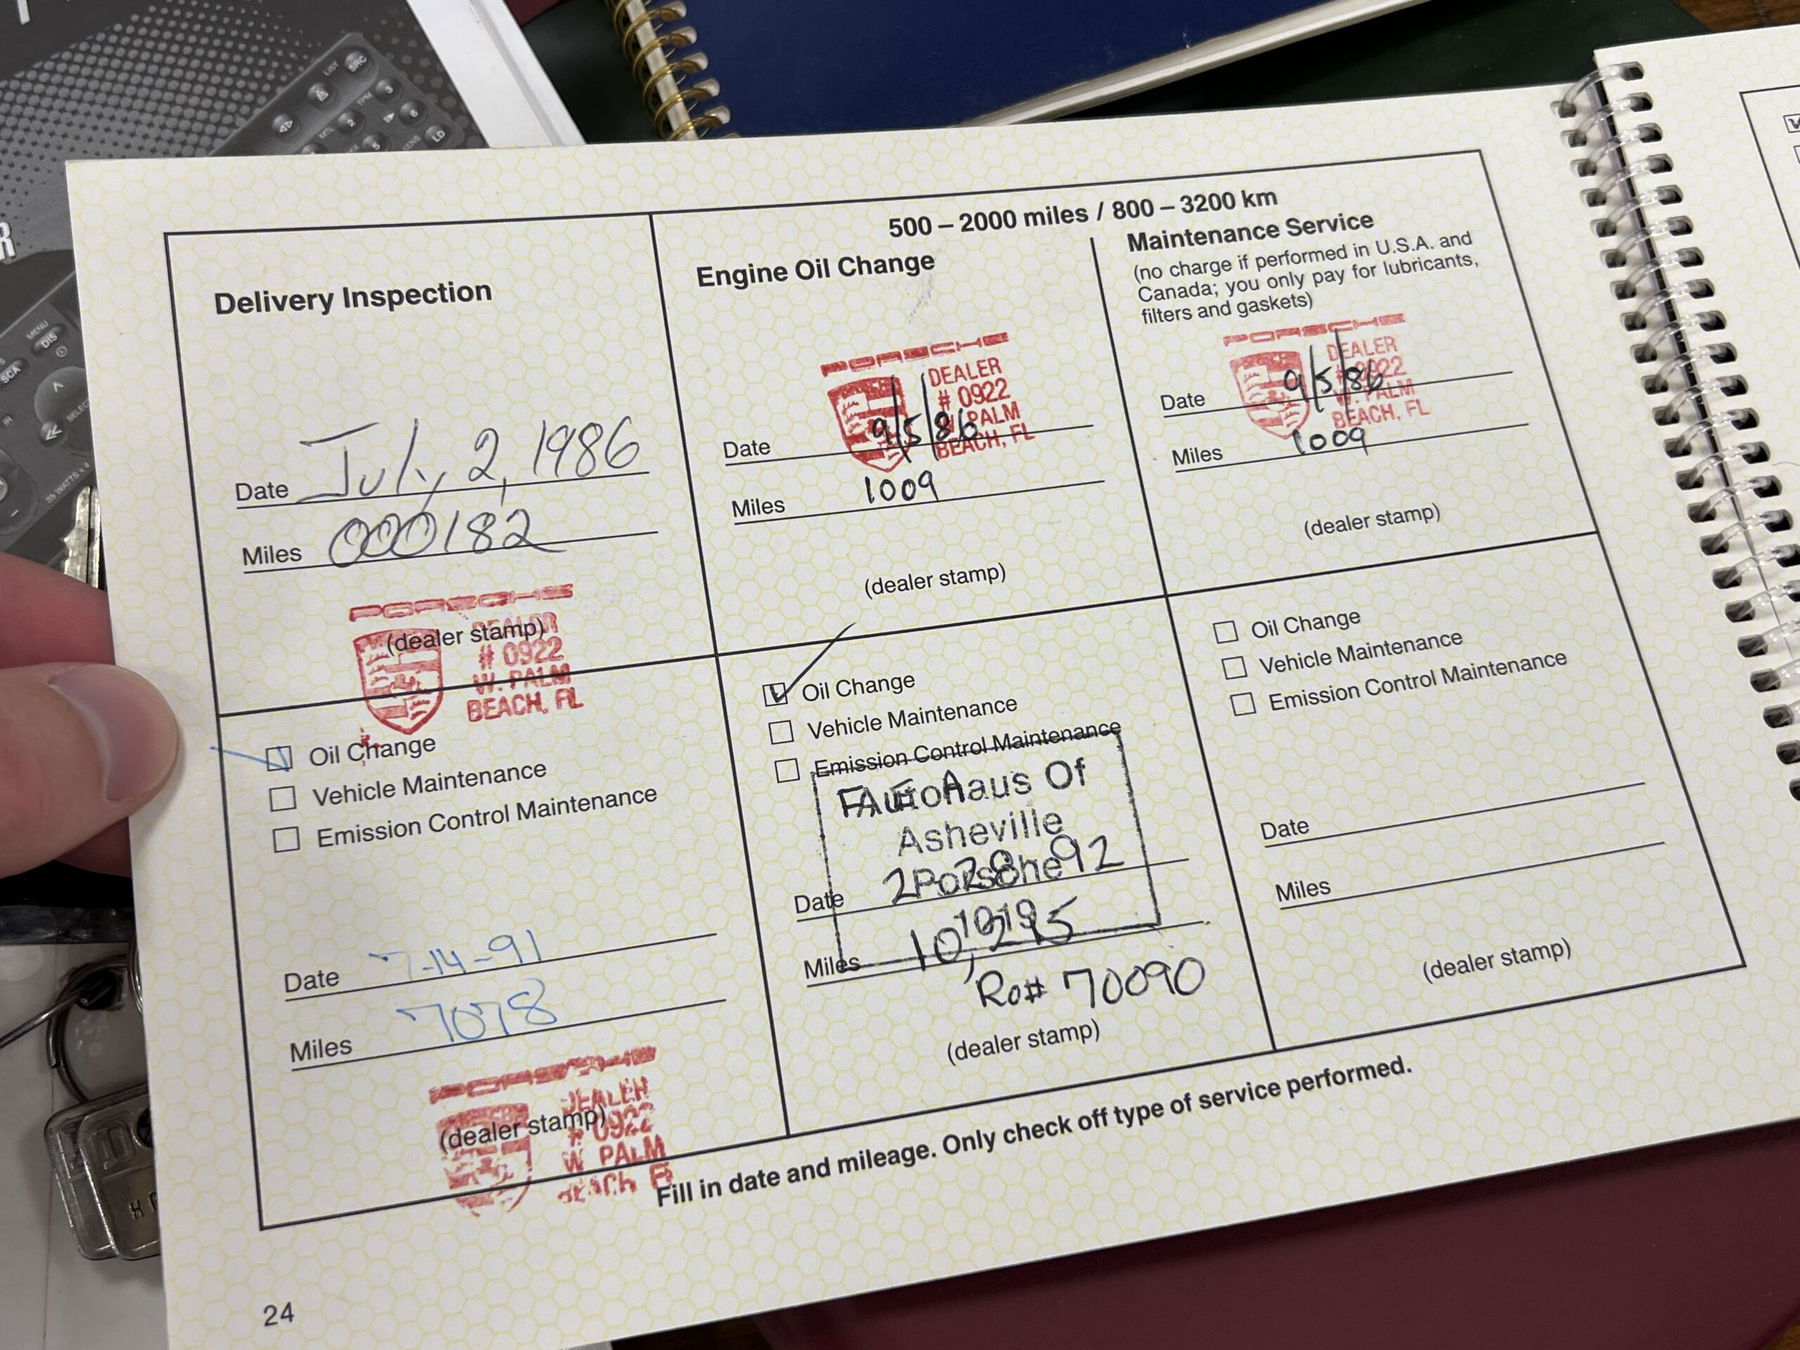 Delivery Inspection
Date July, 2, 1986
Miles 000182
(dealer stamp)
PORSCHE
DEALER
# 0922
W. PALM
BEACH, FL
500 – 2000 miles / 800 – 3200 km
Engine Oil Change
PORSCHE
DEALER
# 0922
W. PALM
BEACH, FL
Date 9/5/86
Miles 1009
(dealer stamp)
Maintenance Service
(no charge if performed in U.S.A. and
Canada; you only pay for lubricants,
filters and gaskets)
PORSCHE
DEALER
# 0922
W. PALM
BEACH, FL
Date 9/5/86
Miles 1009
(dealer stamp)
Oil Change
Vehicle Maintenance
Emission Control Maintenance
Date 7-14-91
Miles 7078
(dealer stamp)
PORSCHE
DEALER
# 0922
W. PALM
BEACH FL
Oil Change
Vehicle Maintenance
Emission Control Maintenance
AutoHaus Of
Asheville
Porsche
Date 2 28 92
Miles 10,
Ro# 70090
(dealer stamp)
Oil Change
Vehicle Maintenance
Emission Control Maintenance
Date
Miles
(dealer stamp)
Fill in date and mileage. Only check off type of service performed.
24
LIST
SRC
MENU
DIS
SCA
SELECT
IR
35 WATTS x 4
LD